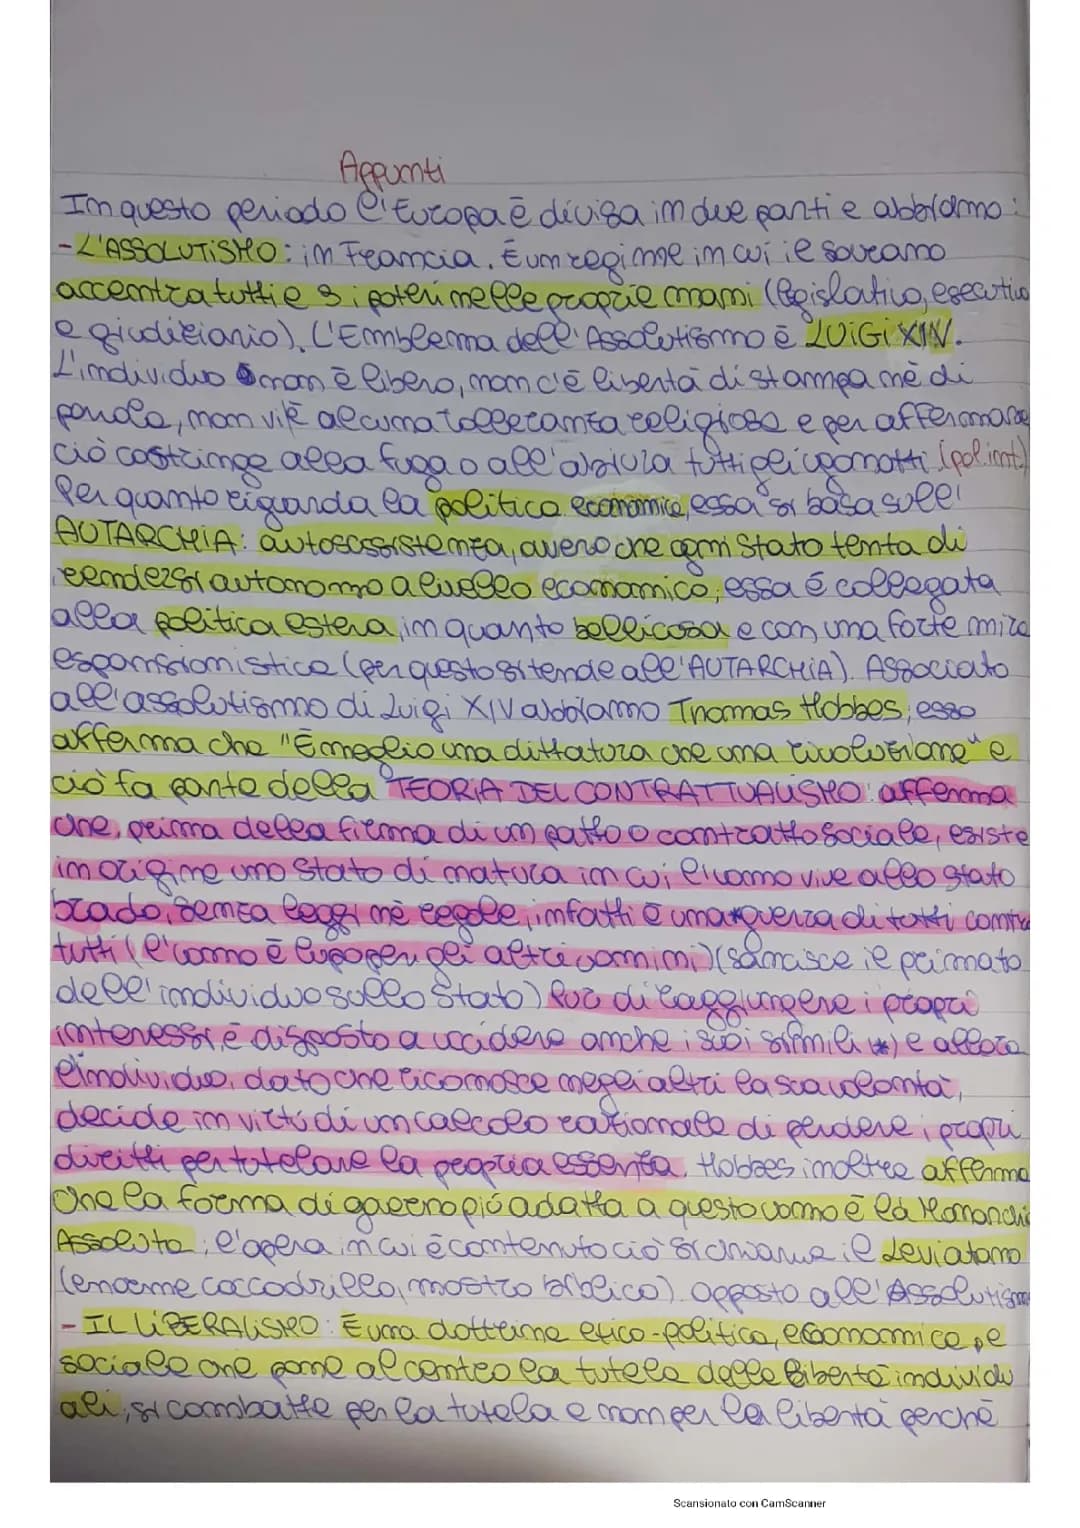 Appunti
In questo periodo l'Europa è divisa in due parti e abbiamo:
- L'ASSOLUTISMO: in Francia. È un regime in cui il sovrano
accentra tutti e 3 i poteri nelle proprie mani (legislativo, esecutivo
e giudiziario). L'Emblema dell'Assolutismo è LUIGI XIV.
L'individuo non è libero, non c'è libertà di stampa nè di
parola, non vi è alcuna tolleranza religiosa e per affermare
ciò costringe alla fuga o all'abiura tutti gli ugonotti (pol.int.)
Per quanto riguarda la politica economica, essa si basa sull'
AUTARCHIA: autosussistenza, ovvero che ogni Stato tenta di
rendersi autonomo a livello economico; essa è collegata
alla politica estera, in quanto bellicosa e con una forte mira
espansionistica (per questo si tende all'AUTARCHIA). Associato
all'assolutismo di Luigi XIV abbiamo Thomas Hobbes; esso
afferma che "È meglio una dittatura che una rivoluzione" e
ciò fa parte della TEORIA DEL CONTRATTUALISMO: afferma
che, prima della firma di un patto o contratto sociale, esiste
in origine uno Stato di natura in cui l'uomo vive allo stato
brado, senza leggi nè regole, infatti è una guerra di tutti contro
tutti (l'uomo è lupo per gli altri uomini) (sancisce il primato
dell'individuo sullo Stato) Pur di raggiungere i propri
interessi, è disposto a uccidere anche i suoi simili (*) e allora
l'individuo, dato che riconosce negli altri la sua volontà,
decide in virtù di un calcolo razionale di perdere i propri
diritti per tutelare la propria essenza. Hobbes inoltre afferma
che la forma di governo più adatta a questo uomo è la Monarchia
Assoluta; l'opera in cui è contenuto ciò si chiama il Leviatano
(enorme coccodrillo, mostro biblico). opposto all'Assolutismo
- IL LIBERALISMO: È una dottrina etico-politica, economica e
sociale che pone al centro la tutela delle libertà individu
ali, si combatte per la tutela e non per la libertà perchè
Scansionato con CamScanner